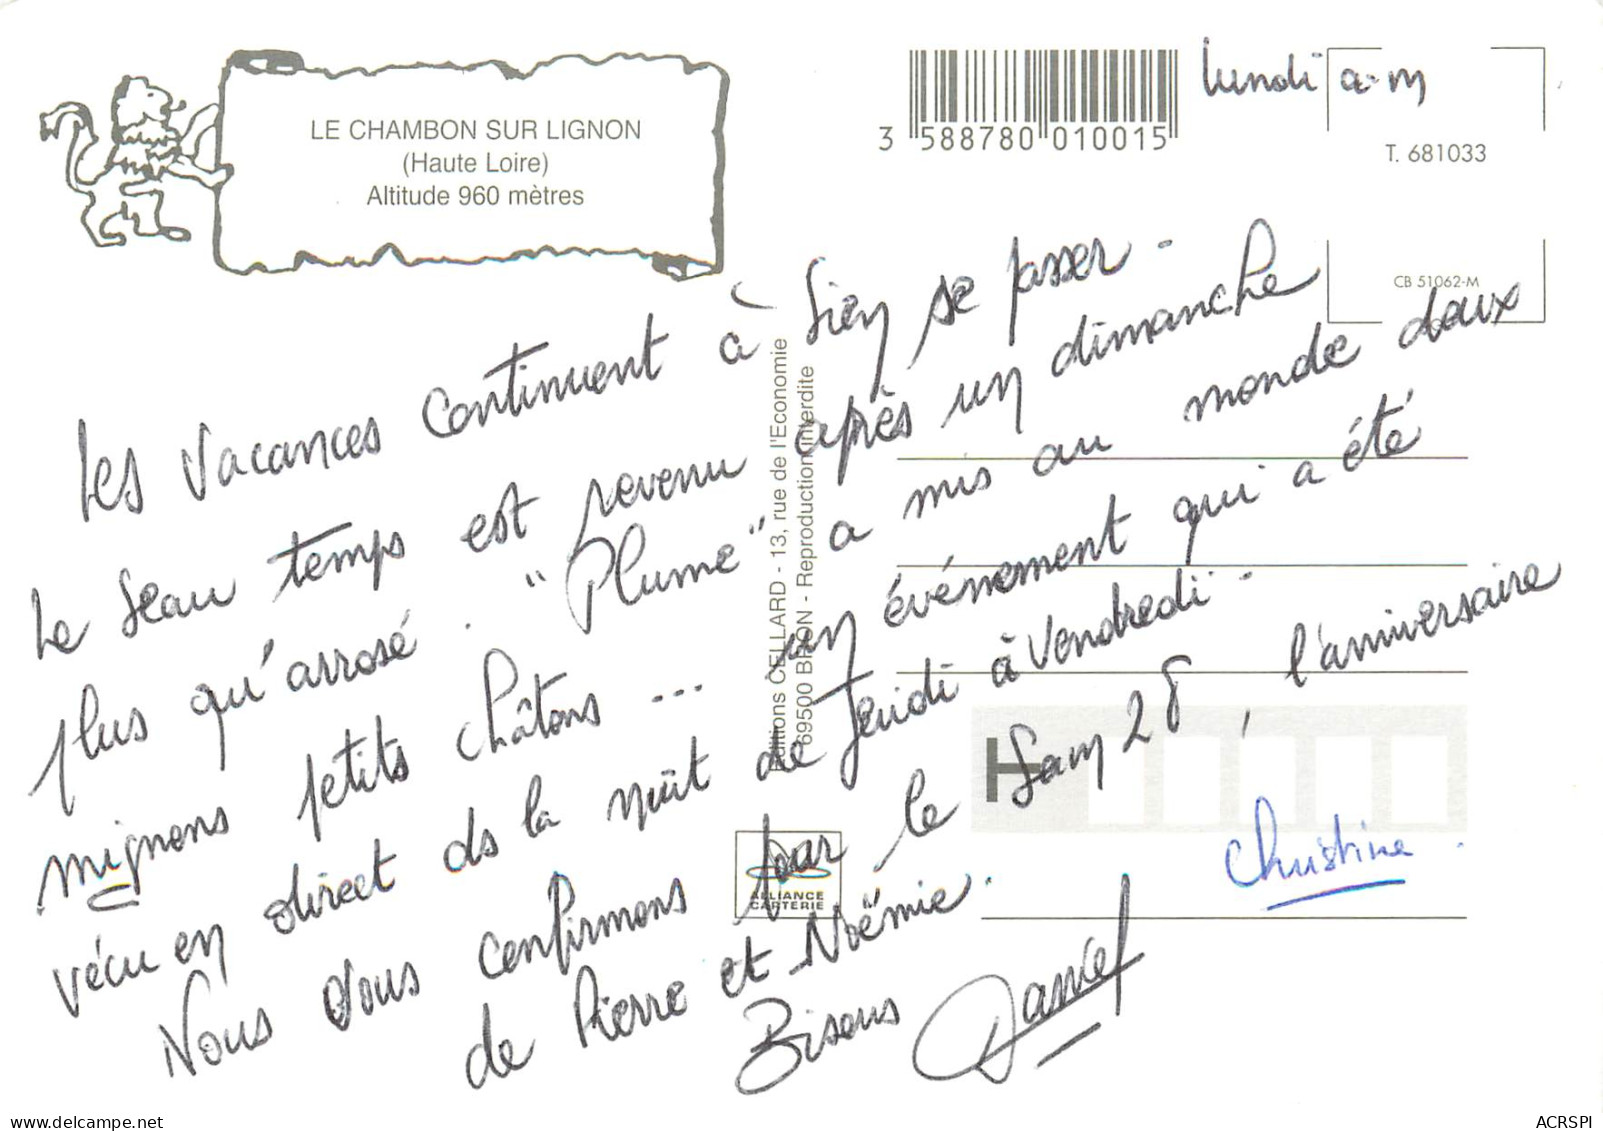 LE CHAMBON SUR LIGNON
(Haute Loire)
Altitude 960 mètres
3 588780 010015
lundi a-m
T. 681033
CB 51062-M
Les vacances continuent à bien se passer -
Le beau temps est revenu après un dimanche
plus qu'arrosé. "Plume" a mis au monde deux
mignons petits châtons ... un événement qui a été
vécu en direct ds la nuit de Jeudi à Vendredi -
Nous vous confirmons pour le Sam 28, l'anniversaire
de Pierre et Noëmie.
Bisous Daniel
Christine.
Editions CELLARD - 13, rue de l'Economie
69500 BRON - Reproduction interdite
H
ALLIANCE
CARTERIE
www.delcampe.net
ACRSPI